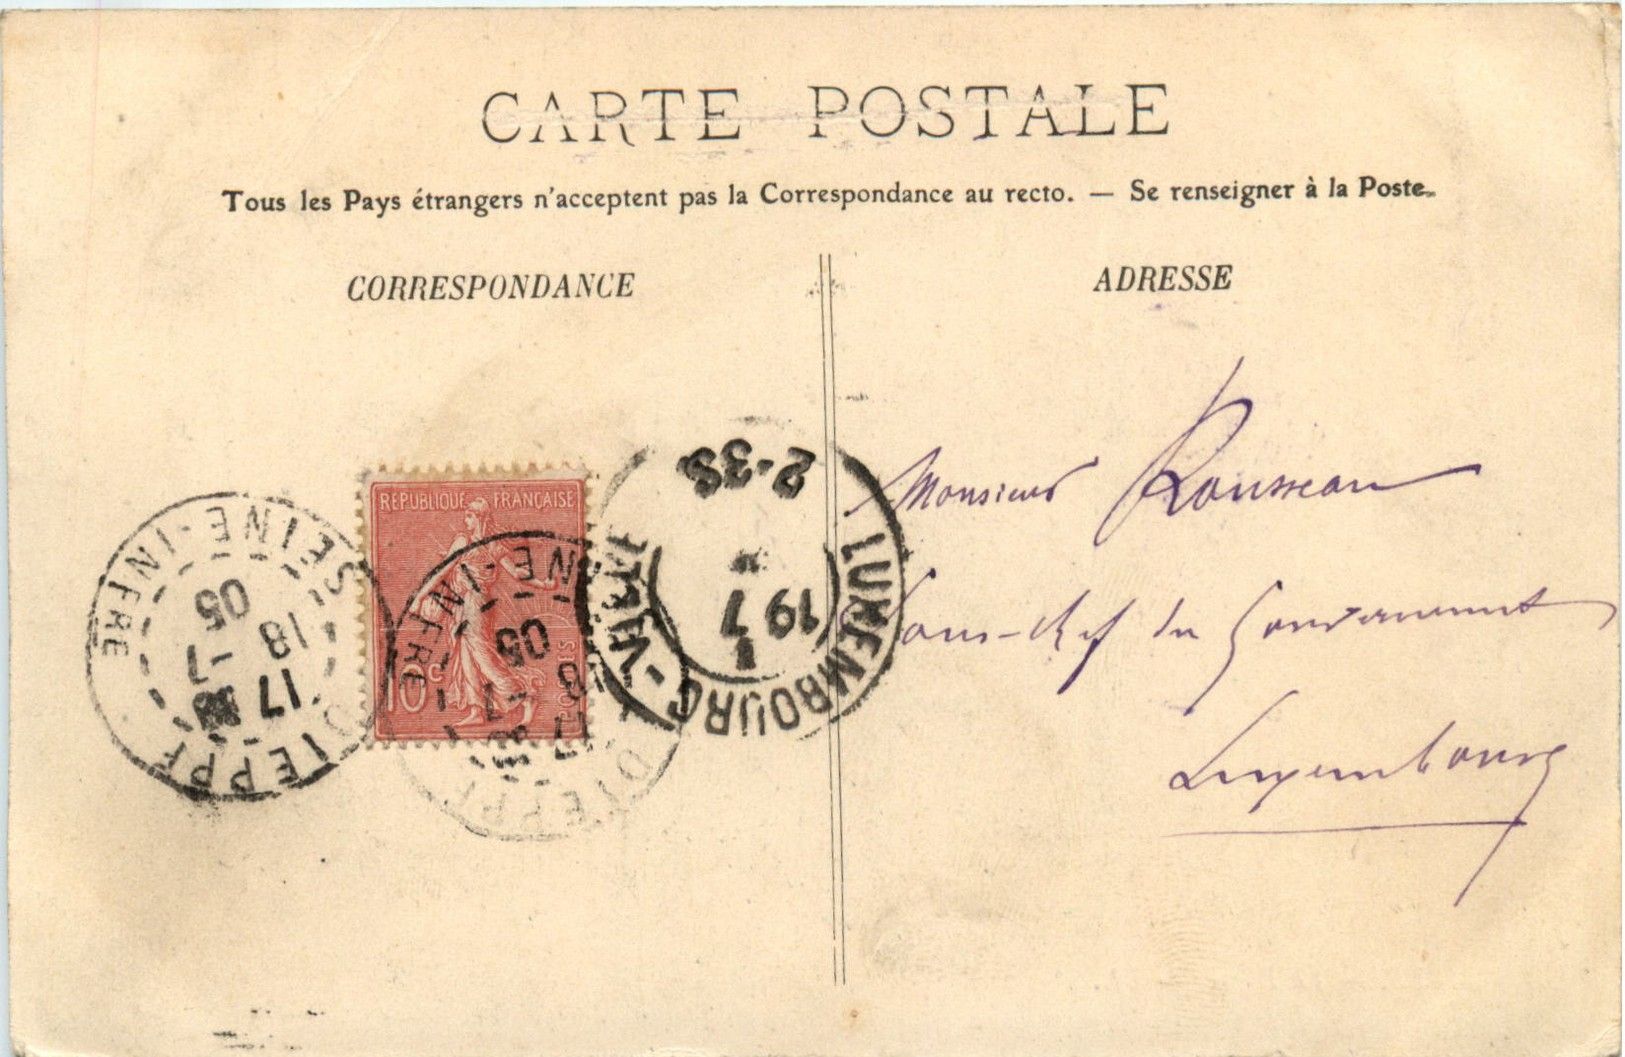 CARTE POSTALE
Tous les Pays étrangers n'acceptent pas la Correspondance au recto. — Se renseigner à la Poste.
CORRESPONDANCE
ADRESSE
RÉPUBLIQUE FRANÇAISE
10 c
DIEPPE
17
18 -7
05
SEINE-INFRE
DIEPPE
17
18 -7
05
SEINE-INFRE
LUXEMBOURG-VILLE
19 7
2-3S
Monsieur Rousseau
Sous-chef du Gouvernement
Luxembourg